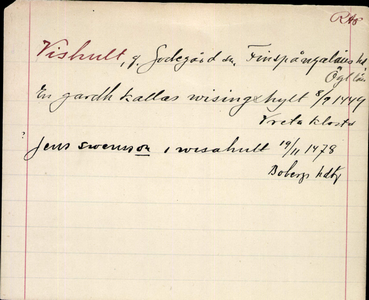 RAÖ
Vishult, g. Godegård sn, Finspångaläns hd
Ögl län
En gardh kallas wisingxhylt 8/9 1449
Vreta kloster
Jens swensson i wisahult 19/11 1478
Bobergs hdbj